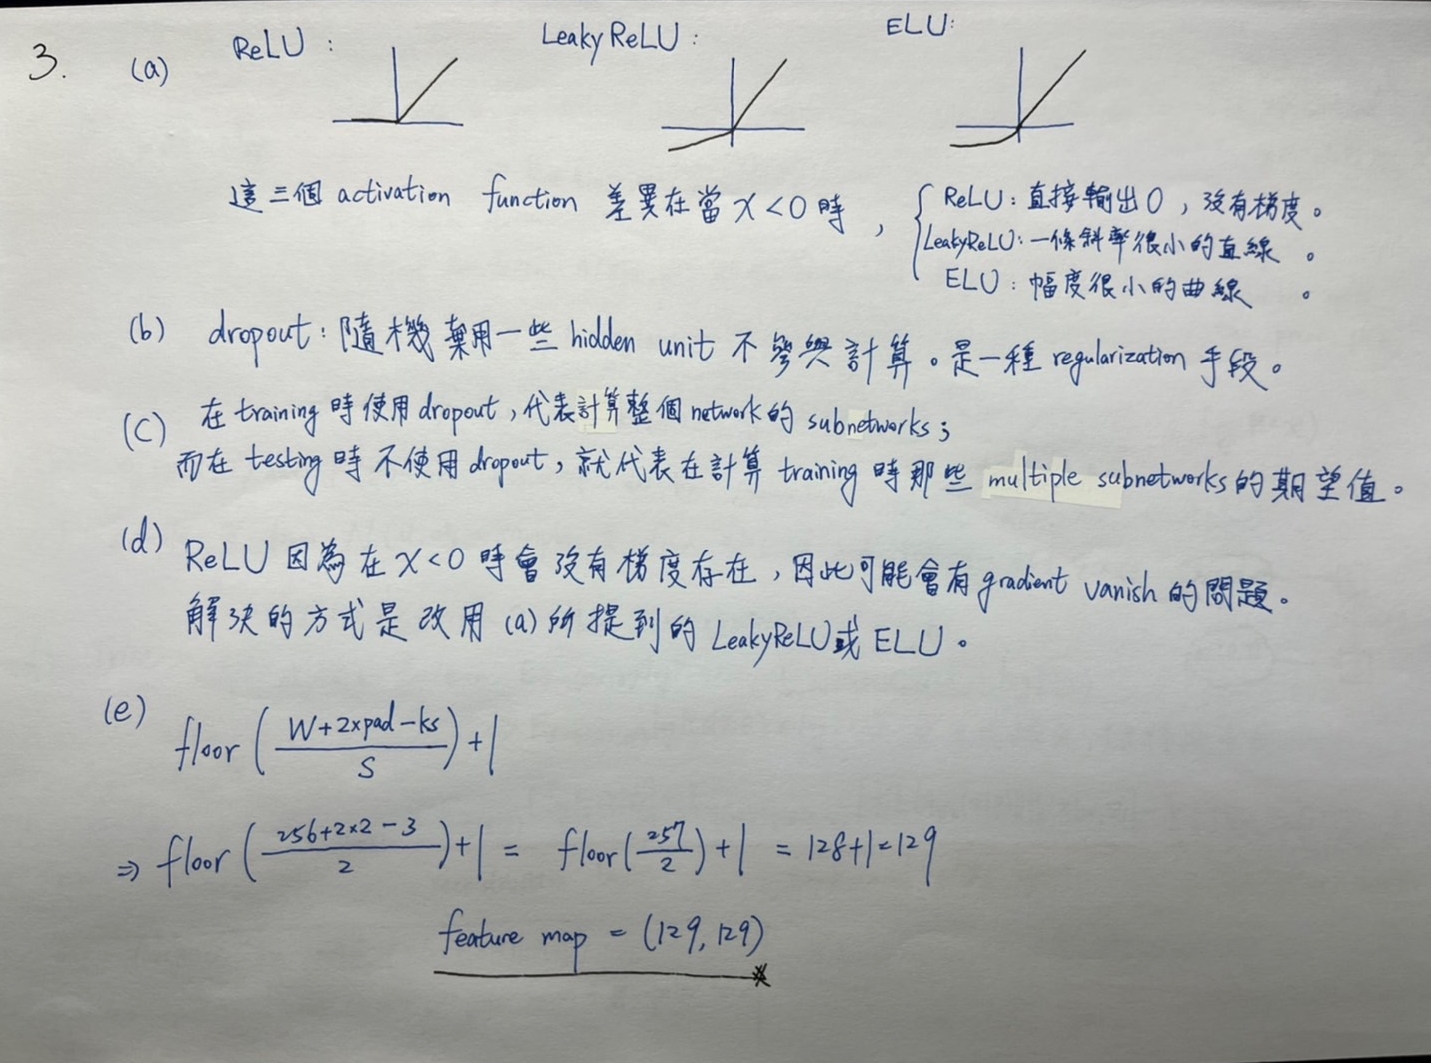 3. (a) ReLU : Leaky ReLU : ELU:
這三個 activation function 差異在當 x<0 時,
ReLU: 直接輸出0,沒有梯度。
LeakyReLU: 一條斜率很小的直線。
ELU: 幅度很小的曲線。
(b) dropout: 隨機棄用一些 hidden unit 不參與計算。是一種 regularization 手段。
(c) 在 training 時使用 dropout,代表計算整個 network 的 subnetworks;
而在 testing 時不使用 dropout,就代表在計算 training 時那些 multiple subnetworks 的期望值。
(d) ReLU 因為在 x<0 時會沒有梯度存在,因此可能會有 gradient vanish 的問題。
解決的方式是改用 (a) 所提到的 LeakyReLU 或 ELU。
(e) floor((W+2×pad-ks)/S)+1
⇒ floor((256+2×2-3)/2)+1 = floor(257/2)+1 = 128+1=129
feature map = (129,129)